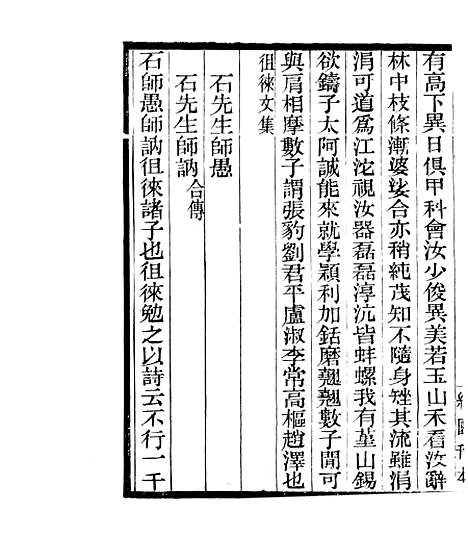 有高下異日俱甲科會汝少俊異美若玉山禾看汝辭
林中枝條漸婆娑合亦稍純茂知不隨身矬其流雖涓
涓可道爲江沱視汝器磊磊淳沆皆蚌螺我有堇山錫
欲鑄子太阿誠能來就學穎利加銛磨翹翹數子閒可
與肩相摩數子謂張豹劉君平盧淑李常高樞趙澤也
徂徠文集
石先生師愚
石先生師訥合傳
石師愚師訥徂徠諸子也徂徠勉之以詩云不行一千